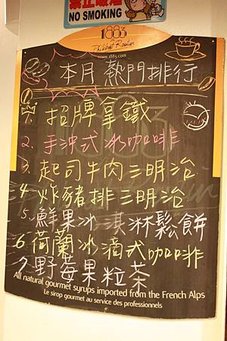 禁止吸煙
NO SMOKING
1883
本月熱門排行
1. 招牌拿鐵
2. 手沖式冰咖啡
3. 起司牛肉三明治
4. 炸豬排三明治
5. 鮮果冰淇淋鬆餅
6. 荷蘭冰滴式咖啡
7. 野莓果粒茶
All natural gourmet syrups imported from the French Alps
Le sirop gourmet au service des professionnels